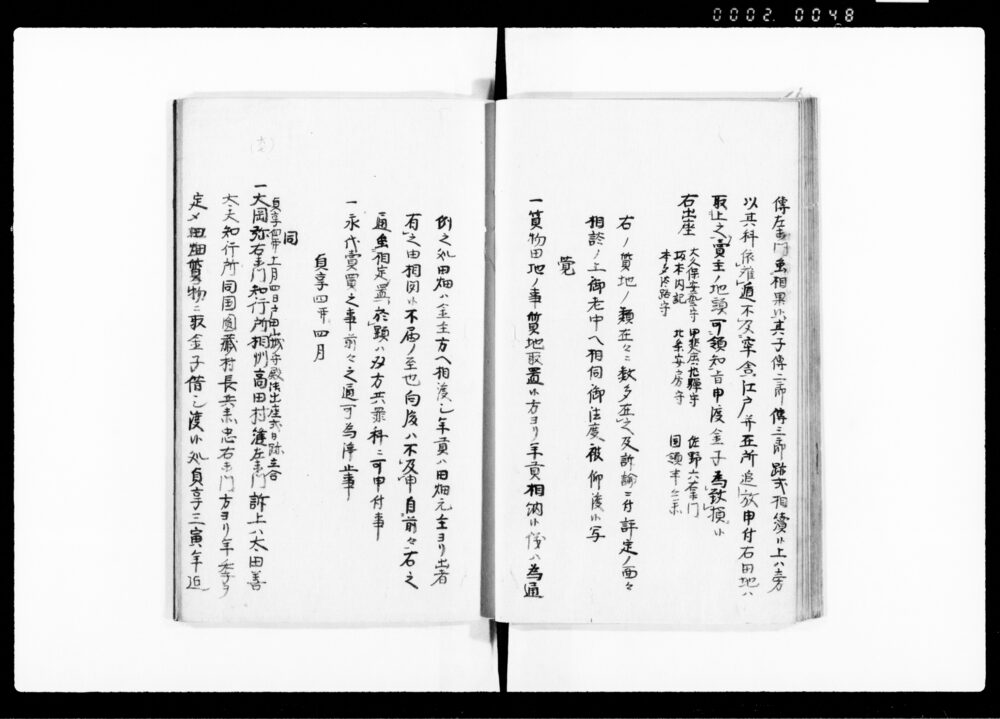 0002 0048
傳左衛門虽相果候其子傳二郎傳三郎跡式相續候上ハ専方
以其科依難遁不及牢舎江戸并在所追放申付右田地ハ
取上之賣主ノ地頭可領知旨申渡金子為致損候
右出座
大久保安藝守 甲斐庄飛騨守 佐野六右衛門
坂本内記 北条安房守 国領半兵衛
本多淡路守
右ノ質地ノ類在々ニ数多在之及訴論ニ付評定ノ面々
相談ノ上御老中ヘ相伺御法度被仰渡候写
覚
一質物田地ノ事質地取置候方ヨリ年貢相納候儀ハ為通
例之処田畑ハ金主方ヘ相渡シ年貢ハ田畑元主ヨリ出者
有之由相聞候不届ノ至也向後ハ不及申自前々右之
通虽相定置於顕ハ双方共罪科ニ可申付事
一永代賣買之事前々之通可為停止事
貞享四年四月
同
貞享四年七月四日戸田山城守殿御出座式日跡立合
一大岡弥右衛門知行所相州高田村縫左衛門訴上ハ太田善
太夫知行所同国圓蔵村長兵衛忠右衛門方ヨリ年季ヲ
定メ田畑質物ニ取金子借シ渡候処貞享三寅年返